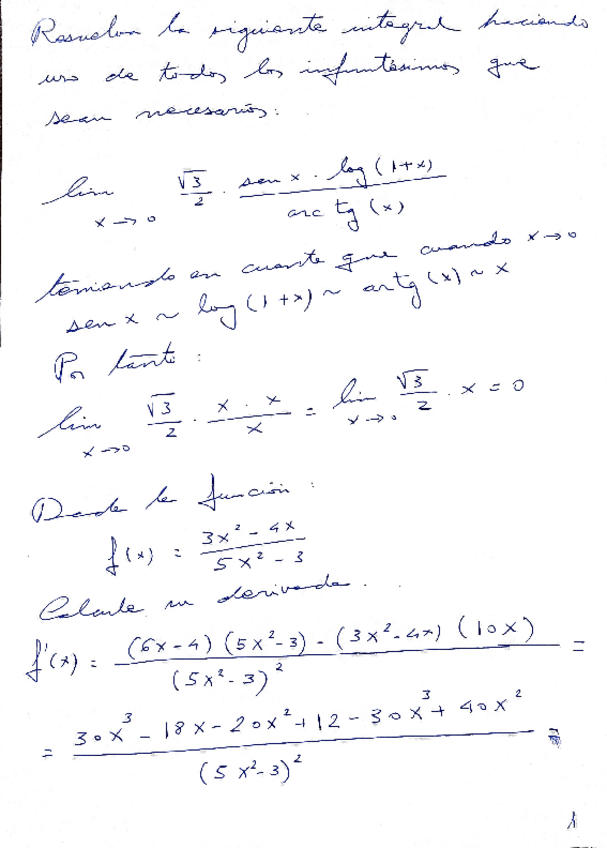 Resuelva la siguiente integral haciendo
uso de todos los infinitésimos que
sean necesarios:
lim x→0 √3/2 · sen x · log (1+x) / arc tg (x)
teniendo en cuenta que cuando x→0
sen x ~ log (1+x) ~ artg (x) ~ x
Por tanto:
lim x→0 √3/2 · x · x / x = lim x→0 √3/2 · x = 0
Dada la función:
f(x) = 3x² - 4x / 5x² - 3
Calcule su derivada.
f'(x) = (6x-4) (5x²-3) - (3x²-4x) (10x) / (5x²-3)² =
= 30x³ - 18x - 20x² + 12 - 30x³ + 40x² / (5x²-3)² =
1